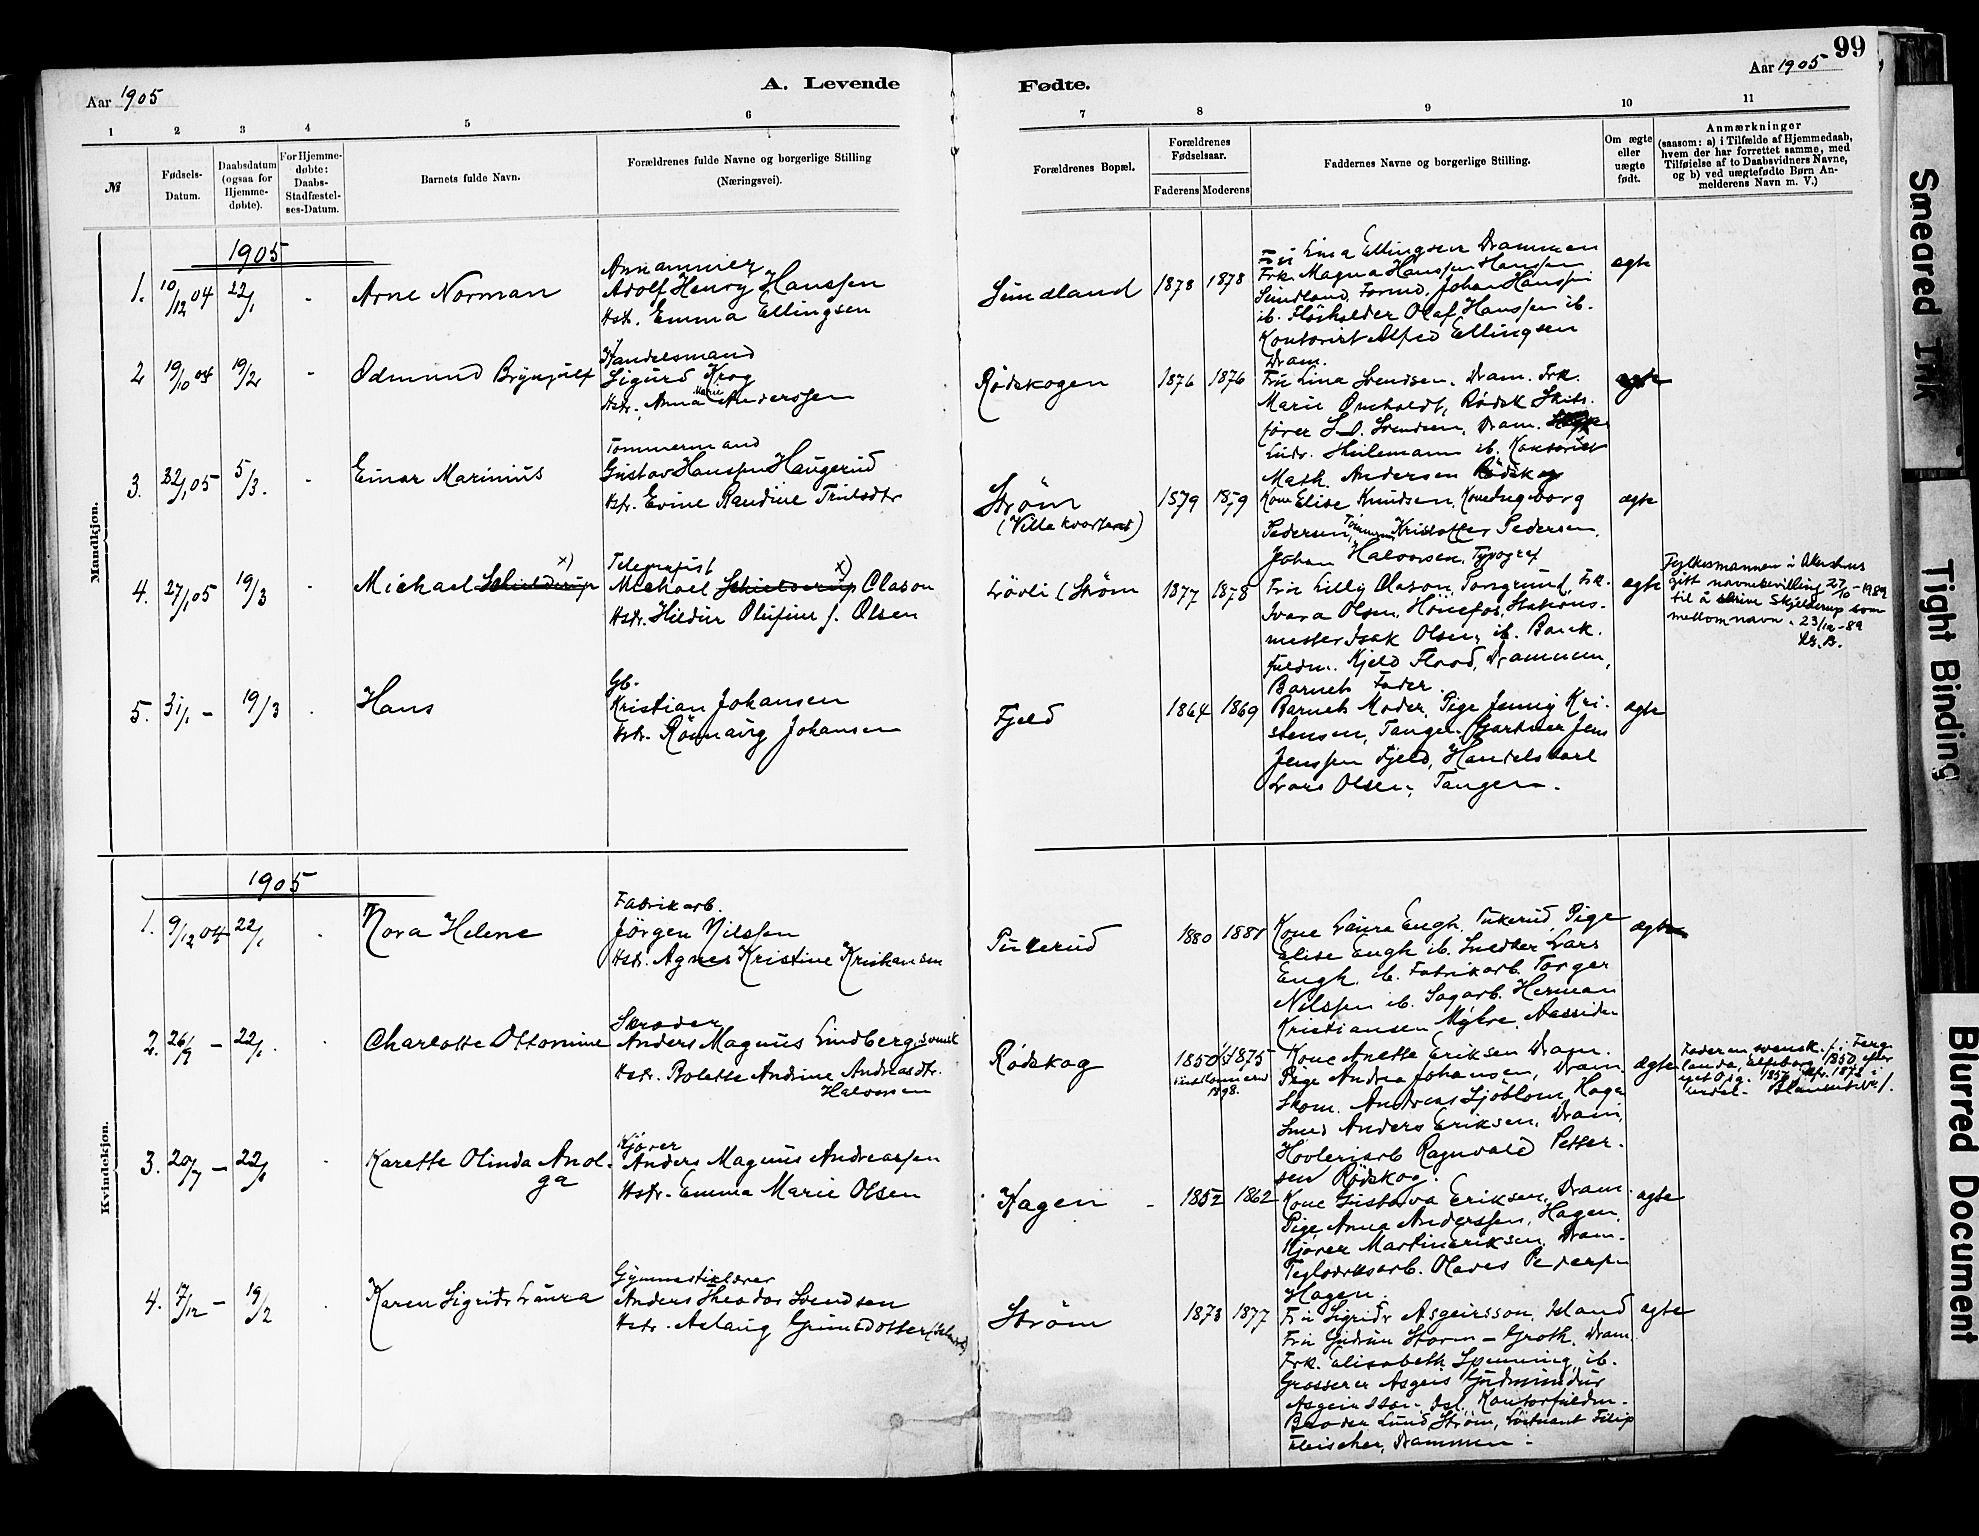 99
Aar 1905
A. Levende
Fødte.
Aar 1905
1 2 3 4 5 6 7 8 9 10 11
№
Fødsels-
Datum.
Daabsdatum
(ogsaa for
Hjemme-
døbte).
For Hjemme-
døbte:
Daabs-
Stadfæstel-
ses-Datum.
Barnets fulde Navn.
Forældrenes fulde Navne og borgerlige Stilling
(Næringsvei).
Forældrenes Bopæl.
Forældrenes
Fødselsaar.
Faderens Moderens
Faddernes Navne og borgerlige Stilling.
Om ægte
eller
uægte
født.
Anmærkninger
(saasom: a) i Tilfælde af Hjemmedaab,
hvem der har forrettet samme, med
Tilføielse af to Daabsvidners Navne,
og b) ved uægtefødte Børn An-
melderens Navn m. V.)
Mandkjøn.
1905
1. 10/12 04 22/1 - Arne Norman
Adolf Henry Hanssen
Hstr. Emma Ellingsen
Sundland 1878 1878
Fru Lina Ellingsen Drammen
Frk. Magna Hanssen
Sundland, Johan Hanssen
ib. Olaf Hanssen ib.
Kontorist Alfred Ellingsen
Dram.
ægte
2 19/10 04 19/2 - Odmund Brynjulf
Handelsmand
Sigurd Krog
Hstr. Anna Marie Anderssen
Rødskogen 1876 1876
Fru Lina Svendsen. Dram. Frk.
Marie Omholdt, Rødsk Skibs-
fører S. D. Svendsen, Dram.
Ludv. ib. Kontorist
Math. Andersen Rødskog
ægte
3. 22/1 05 5/3. - Einar Marinius
Tømmermand
Gustav Hanssen Haugerud
Hstr. Evine Randine
Strøm
(Villa kvarteret)
1879 1859
Kone Elise Knudsen, Kone Ingeborg
Pedersen, Kristoffer Pedersen,
Johan Halvorsen, Typograf
ægte
4. 27/1 05 19/3 - Michael Schielderup x)
Telegrafist
Michael Schielderup x) Clason
Hstr. Hildur Olufine f. Olsen
Løvli (Strøm 1877 1878
Fru Lilly Clason, Frk.
Ivara Olsen, Hønefos, Stations-
mester Isak Olsen, ib. Bank.
fuldm. Kjeld Flood, Drammen,
Barnets Fader.
ægte
Fylkesmannen i Akershus
gitt navnebevilling 27/10-1989
til å skrive Skjelderup som
mellomnavn. 23/10-89
5. 31/1 - 19/3 - Hans
Gb.
Kristian Johansen
Hstr. Rønnaug Johansen
Fjeld 1864 1869
Barnets Moder, Pige Jenny Kri-
stensen, Tangen. Gartner Jens
Jenssen Fjeld, Handelskarl
Lars Olsen, Tangen.
ægte
Kvindekjøn.
1905
1. 9/12 04 22/1 - Nora Helene
Fabrikarb.
Jørgen Nilssen
Hstr. Agnes Kristine Kristiansen
Pukerud 1880 1881
Kone Laura Engh, Pukerud, Pige
Elise Engh ib. Smed Lars
Engh ib. Fabrikarb. Torger
Nilssen ib. Sagarb. Herman
Kristiansen Myhre, Aassiden
ægte
2. 26/9 - 22/1. - Charlotte Ottomine
Skræder
Anders Magnus Lindberg, svensk
Hstr. Rolette Andrine Andreasdtr.
Halvorsen
Rødskog 1850 1875
1898.
Kone Anette Eriksen Dram.
Pige Andrea Johansen, Dram.
Skom. Andreas Sjøblom, Hage
Smed Anders Eriksen, Dram,
Høvleriarb Ragnvald Petter-
sen Rødskog.
ægte
Faderen svensk, f. i Ferge-
landa, Elfsborg 1850,
3. 20/7 - 22/1 - Karette Olinda Anol-
ga
Kjører
Anders Magnus Andreassen
Hstr. Emma Marie Olsen
Hagen - 1852 1862
Kone Gustava Eriksen, Dram.
Pige Anna Anderssen, Hagen,
Kjører Martin Eriksen, Dram.
Teglværksarb. Olaves Pederssen
Hagen.
ægte
4. 7/12 - 19/2 - Karen Sigridr Laura
Gymnastiklærer
Anders Theodor Svendsen
Hstr. Aslaug Grimsdotter (Island)
Strøm 1873 1877
Fru Sigridr Asgeirsson, Island
Fru Gudrun Storm-Groth. Dram.
Frk. Elisabeth Spenning, ib.
Grosserer Asgeir Gudmundur
Asgeirsson. Isl. Kontorfuldm.
Broder Lund Strøm, Løitnant Filip
Fleischer, Drammen.
ægte
Smeared Ink
Tight Binding
Blurred Document